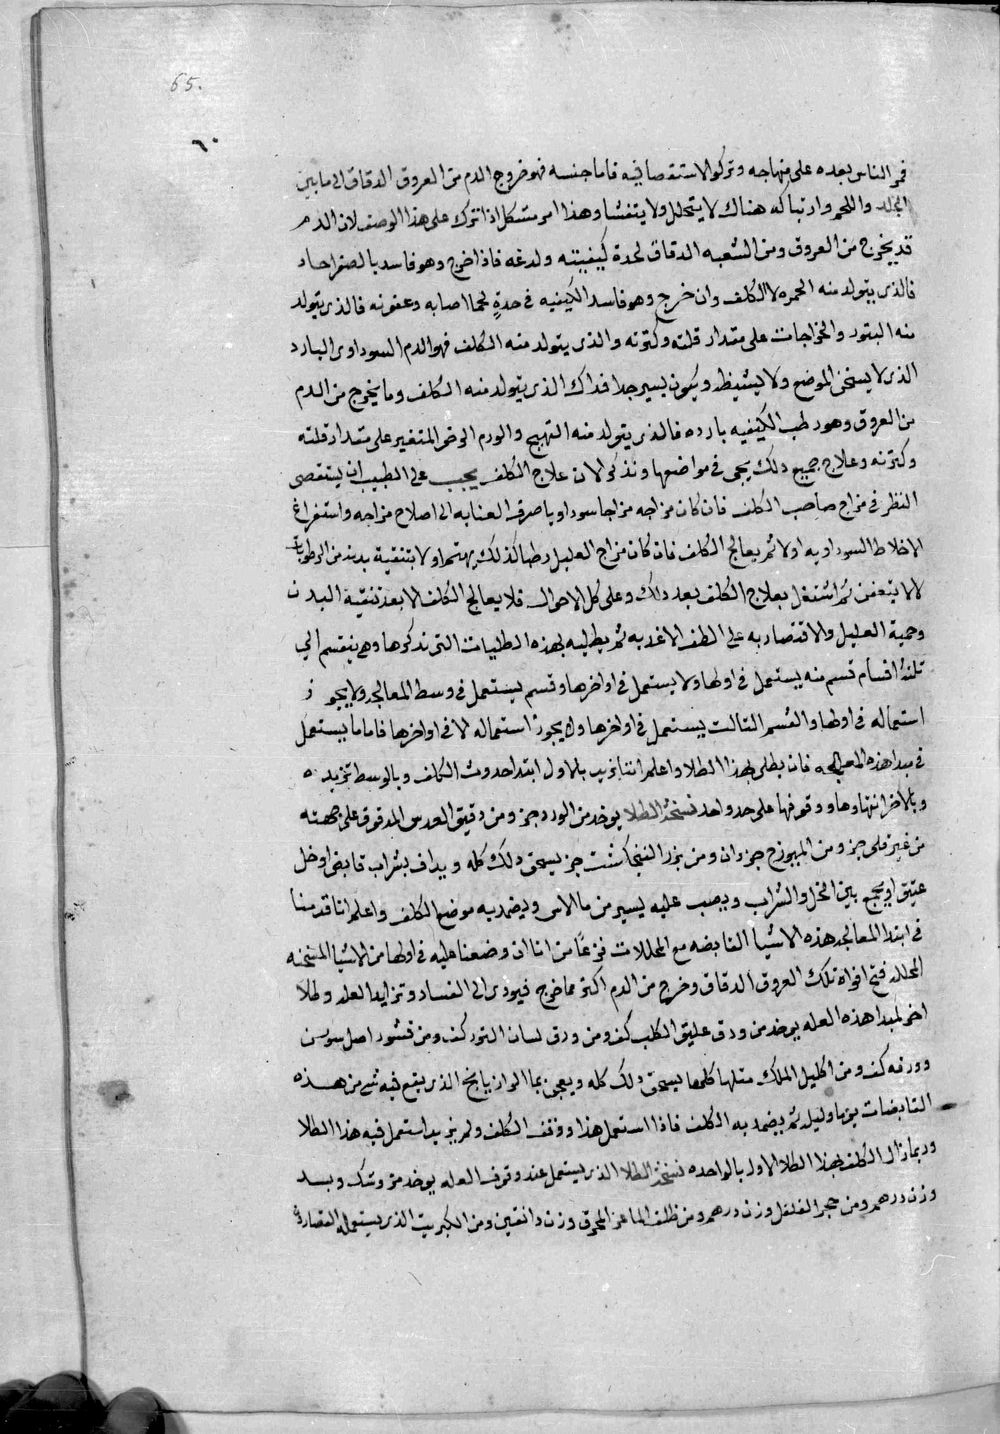 65.
٦٠
فمر الناس بعده على منهاجه وتركوا الاستقصا فيه فاما جنسه فهو خروج الدم من العروق الدقاق الى ما بين
الجلد واللحم وارتباكه هناك لا يتحلل ولا يتفشا وهذا امر مشكل اذا ترك على هذا الوصف لان الدم
قد يخرج من العروق ومن الشعبه الدقاق لحدة كيفيته ولدغه فاذا خرج وهو فاسد بالصفرا حاد
فالذى يتولد منه الحمره لا الكلف وان خرج وهو فاسد الكيفيه فى حدةٍ لحما اصابه وعفونه فالذى يتولد
منه البثور والخراجات على مقدار قلته وكثرته والذى يتولد منه الكلف فهو الدم السوداوى البارد
الذى لا يسخن الموضع ولا يشيطه ويكون يسير جدا فذاك الذى يتولد منه الكلف وما يخرج من الدم
من العروق وهو رطب الكيفيه بارده فالذى يتولد منه التهبج والورم الرخو المتغير على مقدار قلته
وكثرته وعلاج جميع ذلك يجى فى مواضعها ونذكر الان علاج الكلف يجب على الطبيب ان يستقصى
النظر فى مزاج صاحب الكلف فان كان مزاجه مزاجا سوداويا صرف العنايه الى اصلاح مزاجه واستفراغ
الاخلاط السوداويه اولا ثم يعالج الكلف فان كان مزاج العليل رطبا كذلك يهتم اولا بتنقية بدنه من الرطوبات
لالا يتعفن ثم اشتغل بعلاج الكلف بعد ذلك وعلى كل الاحوال فلا يعالج الكلف الا بعد تنقية البدن
وحمية العليل والاقتصار به على الطف الاغذيه ثم يطليه بهذه الطليات التى نذكرها وهى ينقسم الى
ثلثة اقسام قسم منه يستعمل فى اولها ولا يستعمل فى اواخرها وقسم يستعمل فى وسط المعالجه ولا يجوز
استعماله فى اولها والقسم الثالث يستعمل فى اواخرها ولا يجوز استعماله لا فى اواخرها فاما ما يستعمل
فى مبدا هذه المعالجه فان يطلى بهذا الطلا واعلم اننا نريد بالاول ابتدا حدوث الكلف وبالوسط تزيده
وبالاخر انتهاوها ووقوفها على حد واحد نسخة الطلا يوخذ من الورد جز ومن دقيق العدس المدقوق على جهته
من غير قلى جز ومن الميبوزج جزدان ومن بزر الفنجاكشت جز يسحق ذلك كله ويداف بشراب قابض او خل
عتيق او يجمع بين الخل والشراب ويصب عليه يسير من ما الاس ويضمد به موضع الكلف واعلم انا قدمنا
فى ابتدا المعالجه هذه الاشيا القابضه مع المحللات فزعًا من انا ان وضعنا عليه فى اولها من الاشيا المسخنه
المحلله فتح افواه تلك العروق الدقاق وخرج من الدم اكثر مما خرج فيودى الى الفساد وتزايد العله وطلا
اخر لمبدا هذه العله يوخذ من ورق عليق الكلب كف ومن ورق لسان الثور كف ومن قشور اصل سوسن
وورقه كف ومن اكليل الملك مثلها كلها يسحق ذلك كله ويعجن بما الرازيانج الذى يقع فيه شى من هذه
القابضات يوما وليله ثم يضمد به الكلف فاذا استعمل هذا ووقف الكلف ولم يزيد استعمل فيه هذا الطلا
وربما زال الكلف بهذا الطلا الاول بالواحده نسخة الطلا الذى يستعمل عند وقوف العله يوخذ مر وسك وبسد
وزن درهم ومن حجر الفلفل وزن درهم ومن ظلف الماعز المحرق وزن دانقين ومن الكبريت الذى يستعمله القصارون